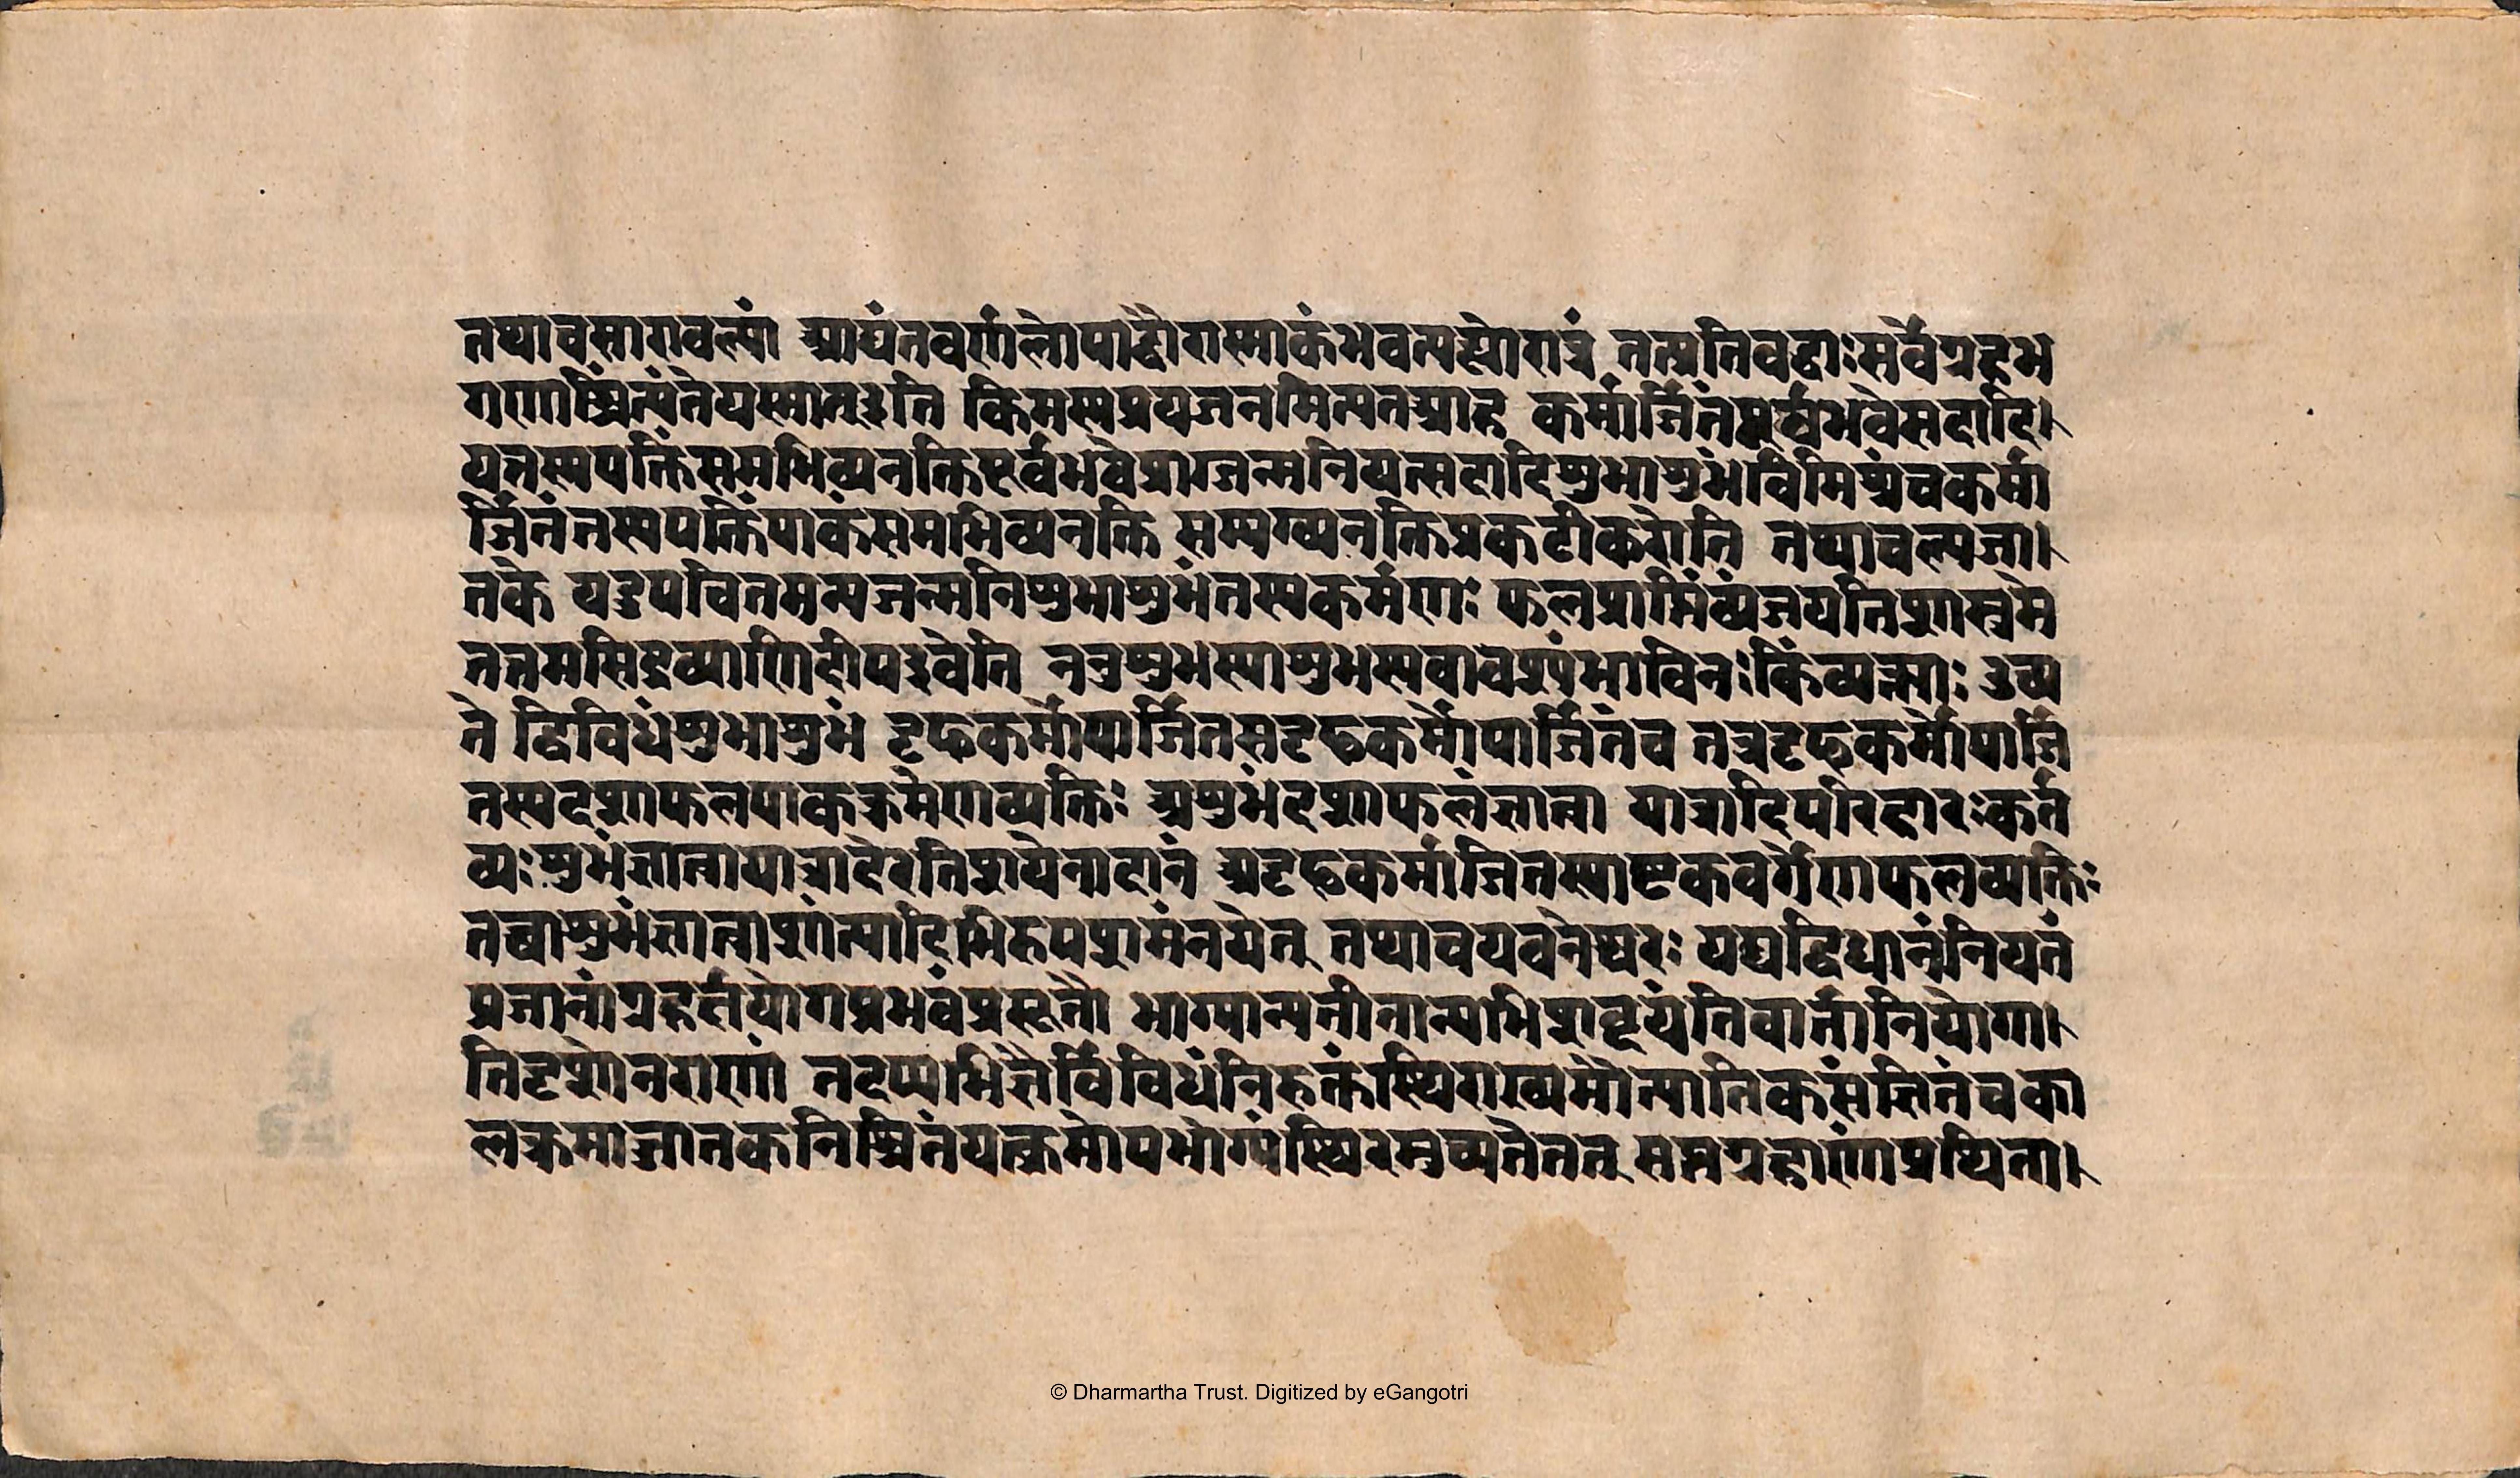 तथाचसारावल्यां आद्यंतवर्णलोपाद्धोरास्माकंभवत्यहोरात्रं तत्प्रतिबद्धाःसर्वेग्रहभ
गणाश्चिंत्यंतेयस्मात् इति किमस्यप्रयजनमित्यतआह कर्मार्जितंपूर्वभवेसदादि।
यत्तस्यपक्तिंसमभिव्यनक्तिपूर्वभवेप्राग्जन्मनियत्सदादिशुभाशुभंविमिश्रंचकर्मा
र्जितंतस्यपक्तिंपाकंसमभिव्यनक्ति सम्यग्व्यनक्तिप्रकटीकरोति तथाचल्पजा।
तके यदुपचितमन्यजन्मनिशुभाशुभंतस्यकर्मणः फलप्राप्तिंव्यंजयतिशास्त्रमे
तत्तमसिद्रव्याणिदीपइवेति ननुशुभस्याशुभस्यवावश्यंभाविनःकिंव्यक्त्याः उच्य
ते द्विविधंशुभाशुभं दृढकर्मोपार्जितमदृढकर्मोपार्जितंच तत्रदृढकर्मोपार्जि
तस्यदशाफलपाकक्रमेणव्यक्तिः अशुभंदशाफलंज्ञात्वा यात्रादिपरिहारःकर्त
व्यः शुभंज्ञात्वायात्रादेरतिशयेनादानं अदृढकर्मार्जितस्याष्टकवर्गेणफलव्यक्तिः
तच्चाशुभंज्ञात्वाशांत्यादिभिरुपशमंनयेत् तथाचयवनेश्वरः यद्यद्विधानंनियतं
प्रजानांग्रहर्क्षयोगप्रभवंप्रसूतौ भाग्यान्यनीतान्यभिशब्दयंतिवार्तानियोगा।
तिदृशोनराणां तदप्यभिज्ञैर्विविधंनिरुक्तंस्थिराख्यमौत्पातिकसंज्ञितंचका
लक्रमाज्जातकनिश्चितंयत्क्रमोपभोग्यंस्थिरमुच्यतेतत् सप्तग्रहाणांप्रथिता।
© Dharmartha Trust. Digitized by eGangotri